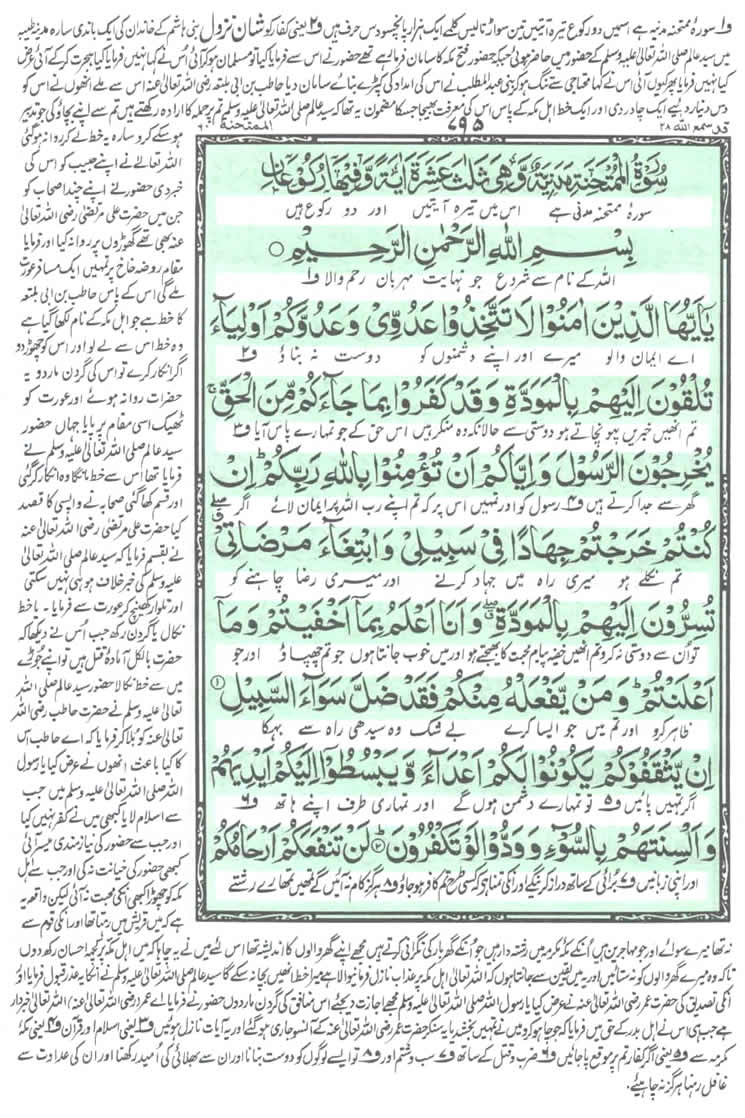 و۱ سورۂ ممتحنہ مدنیہ ہے اسمیں دو رکوع تیرہ آیتیں تین سو اڑتالیس کلمے ایک ہزار پانچسو دس حرف ہیں و۲ یعنی کفار کو شان نزول بنی ہاشم کے خاندان کی ایک باندی سارہ مدینہ طیبہ
میں سید عالم صلی اللہ تعالیٰ علیہ وسلم کے حضور میں حاضر ہوئی جبکہ حضور فتح مکہ کا سامان فرما رہے تھے حضور نے اس سے فرمایا کیا تو مسلمان ہو کر آئی اُس نے کہا نہیں فرمایا کیا ہجرت کر کے آئی عرض
کیا نہیں فرمایا پھر کیوں آئی اس نے کہا محتاجی سے تنگ ہو کر بنی عبدالمطلب نے اس کی امداد کی کپڑے بنائے سامان دیا حاطب بن ابی بلتعہ رضی اللہ تعالیٰ عنہ اس سے ملے انھوں نے اس کو
دس دینار دیے ایک چادر دی اور ایک خط اہل مکہ کے پاس اس کی معرفت بھیجا جسکا مضمون یہ تھا کہ سید عالم صلی اللہ تعالیٰ علیہ وسلم تم پر حملہ کا ارادہ رکھتے ہیں تم سے اپنے بچاؤ کی جو تدبیر
قد سمع اللہ ۲۸
۷۹۵
الممتحنة ۶۰
سُوْرَةُ الْمُمْتَحِنَةِ مَدَنِيَّةٌ وَّهِيَ ثَلٰثَ عَشْرَةَ اٰيَةً وَّفِيْهَا رُكُوْعَانِ
سورۂ ممتحنہ مدنی ہے اس میں تیرہ آیتیں اور دو رکوع ہیں
بِسْمِ اللّٰهِ الرَّحْمٰنِ الرَّحِيْمِ ○
اللہ کے نام سے شروع جو نہایت مہربان رحم والا و۱
يٰۤاَيُّهَا الَّذِيْنَ اٰمَنُوْا لَا تَتَّخِذُوْا عَدُوِّيْ وَعَدُوَّكُمْ اَوْلِيَآءَ
اے ایمان والو میرے اور اپنے دشمنوں کو دوست نہ بناؤ و۲
تُلْقُوْنَ اِلَيْهِمْ بِالْمَوَدَّةِ وَقَدْ كَفَرُوْا بِمَا جَآءَكُمْ مِّنَ الْحَقِّ ۚ
تم انھیں خبریں پہونچاتے ہو دوستی سے حالانکہ وہ منکر ہیں اس حق کے جو تمہارے پاس آیا و۳
يُخْرِجُوْنَ الرَّسُوْلَ وَاِيَّاكُمْ اَنْ تُؤْمِنُوْا بِاللّٰهِ رَبِّكُمْ ۗ اِنْ
گھر سے جدا کرتے ہیں و۴ رسول کو اور تمہیں اس پر کہ تم اپنے رب اللہ پر ایمان لائے اگر
كُنْتُمْ خَرَجْتُمْ جِهَادًا فِيْ سَبِيْلِيْ وَابْتِغَآءَ مَرْضَاتِيْ
تم نکلے ہو میری راہ میں جہاد کرنے اور میری رضا چاہنے کو
تُسِرُّوْنَ اِلَيْهِمْ بِالْمَوَدَّةِ وَاَنَا اَعْلَمُ بِمَاۤ اَخْفَيْتُمْ وَمَاۤ
تو اُن سے دوستی نہ کرو تم انھیں خفیہ پیام محبت کا بھیجتے ہو اور میں خوب جانتا ہوں جو تم چھپاؤ اور جو
اَعْلَنْتُمْ ۗ وَمَنْ يَّفْعَلْهُ مِنْكُمْ فَقَدْ ضَلَّ سَوَآءَ السَّبِيْلِ ①
ظاہر کرو اور تم میں جو ایسا کرے بے شک وہ سیدھی راہ سے بہکا
اِنْ يَّثْقَفُوْكُمْ يَكُوْنُوْا لَكُمْ اَعْدَآءً وَّيَبْسُطُوْۤا اِلَيْكُمْ اَيْدِيَهُمْ
اگر تمہیں پائیں و۵ تو تمہارے دشمن ہوں گے اور تمہاری طرف اپنے ہاتھ و۶
وَاَلْسِنَتَهُمْ بِالسُّوْٓءِ وَوَدُّوْا لَوْ تَكْفُرُوْنَ ② لَنْ تَنْفَعَكُمْ اَرْحَامُكُمْ
اور اپنی زبانیں و۷ برائی کے ساتھ دراز کریں گے اور انکی تمنا ہے کہ کسی طرح تم کافر ہو جاؤ و۸ ہرگز کام نہ آئیں گے تمھیں تمھارے رشتے
ہو سکے کرو سارہ یہ خط لے کر روانہ ہو گئی
اللہ تعالیٰ نے اپنے حبیب کو اس کی
خبر دی حضور نے اپنے چند اصحاب کو
جن میں حضرت علی مرتضیٰ رضی اللہ تعالیٰ
عنہ بھی تھے گھوڑوں پر روانہ کیا اور فرمایا
مقام روضہ خاخ پر تمہیں ایک مسافر عورت
ملے گی اس کے پاس حاطب بن ابی بلتعہ
کا خط ہے جو اہل مکہ کے نام لکھا گیا ہے
وہ خط اس سے لے لو اور اس کو چھوڑ دو
اگر انکار کرے تو اس کی گردن مار دو یہ
حضرات روانہ ہوئے اور عورت کو
ٹھیک اسی مقام پر پایا جہاں حضور
سید عالم صلی اللہ تعالیٰ علیہ وسلم نے
فرمایا تھا اُس سے خط مانگا وہ انکار کر گئی
اور قسم کھا گئی صحابہ نے واپسی کا قصد
کیا حضرت علی مرتضیٰ رضی اللہ تعالیٰ عنہ
نے بقسم فرمایا کہ سید عالم صلی اللہ تعالیٰ
علیہ وسلم کی خبر خلاف ہو ہی نہیں سکتی
اور تلوار کھینچ کر عورت سے فرمایا۔ یا خط
نکال یا گردن رکھ جب اُس نے دیکھا کہ
حضرت بالکل آمادۂ قتل ہیں تو اپنے جوڑے
میں سے خط نکالا حضور سید عالم صلی اللہ
تعالیٰ علیہ وسلم نے حضرت حاطب رضی اللہ
تعالیٰ عنہ کو بلا کر فرمایا کہ اے حاطب اس
کا کیا باعث انھوں نے عرض کیا یا رسول
اللہ صلی اللہ تعالیٰ علیہ وسلم میں جب
سے اسلام لایا کبھی میں نے کفر نہیں کیا
اور جب سے حضور کی نیازمندی میسر آئی
کبھی حضور کی خیانت نہ کی اور جب سے اہل
مکہ کو چھوڑا کبھی انکی محبت نہ آئی لیکن واقعہ یہ
ہے کہ میں قریش میں رہتا تھا اور انکی قوم سے
نہ تھا میرے سوائے اور جو مہاجرین ہیں اُنکے مکہ مکرمہ میں رشتہ دار ہیں جو اُنکے گھر بار کی نگرانی کرتے ہیں مجھے اپنے گھر والوں کا اندیشہ تھا اس لئے میں نے یہ چاہا کہ میں اہل مکہ پر کچھ احسان رکھ دوں
تاکہ وہ میرے گھر والوں کو نہ ستائیں اور یہ میں یقین سے جانتا ہوں کہ اللہ تعالیٰ اہل مکہ پر عذاب نازل فرمانیوالا ہے میرا خط انھیں بچا نہ سکے گا سید عالم صلی اللہ تعالیٰ علیہ وسلم نے انکا یہ عذر قبول فرمایا اور
انکی تصدیق کی حضرت عمر رضی اللہ تعالیٰ عنہ نے عرض کیا یا رسول اللہ صلی اللہ تعالیٰ علیہ وسلم مجھے اجازت دیجئے اس منافق کی گردن مار دوں حضور نے فرمایا اے عمر (رضی اللہ تعالیٰ عنہ) اللہ تعالیٰ خبردار
ہے جب ہی اس نے اہل بدر کے حق میں فرمایا کہ جو چاہو کرو میں نے تمہیں بخش دیا یہ سنکر حضرت عمر رضی اللہ تعالیٰ عنہ کے آنسو جاری ہو گئے اور یہ آیات نازل ہوئیں و۳ یعنی اسلام اور قرآن و۴ یعنی مکہ
مکرمہ سے و۵ یعنی اگر کفار تم پر موقع پا جائیں و۶ ضرب و قتل کے ساتھ و۷ سب و شتم اور و۸ تو ایسے لوگوں کو دوست بنانا اور ان سے بھلائی کی اُمید رکھنا اور ان کی عداوت سے
غافل رہنا ہرگز نہ چاہئیے.